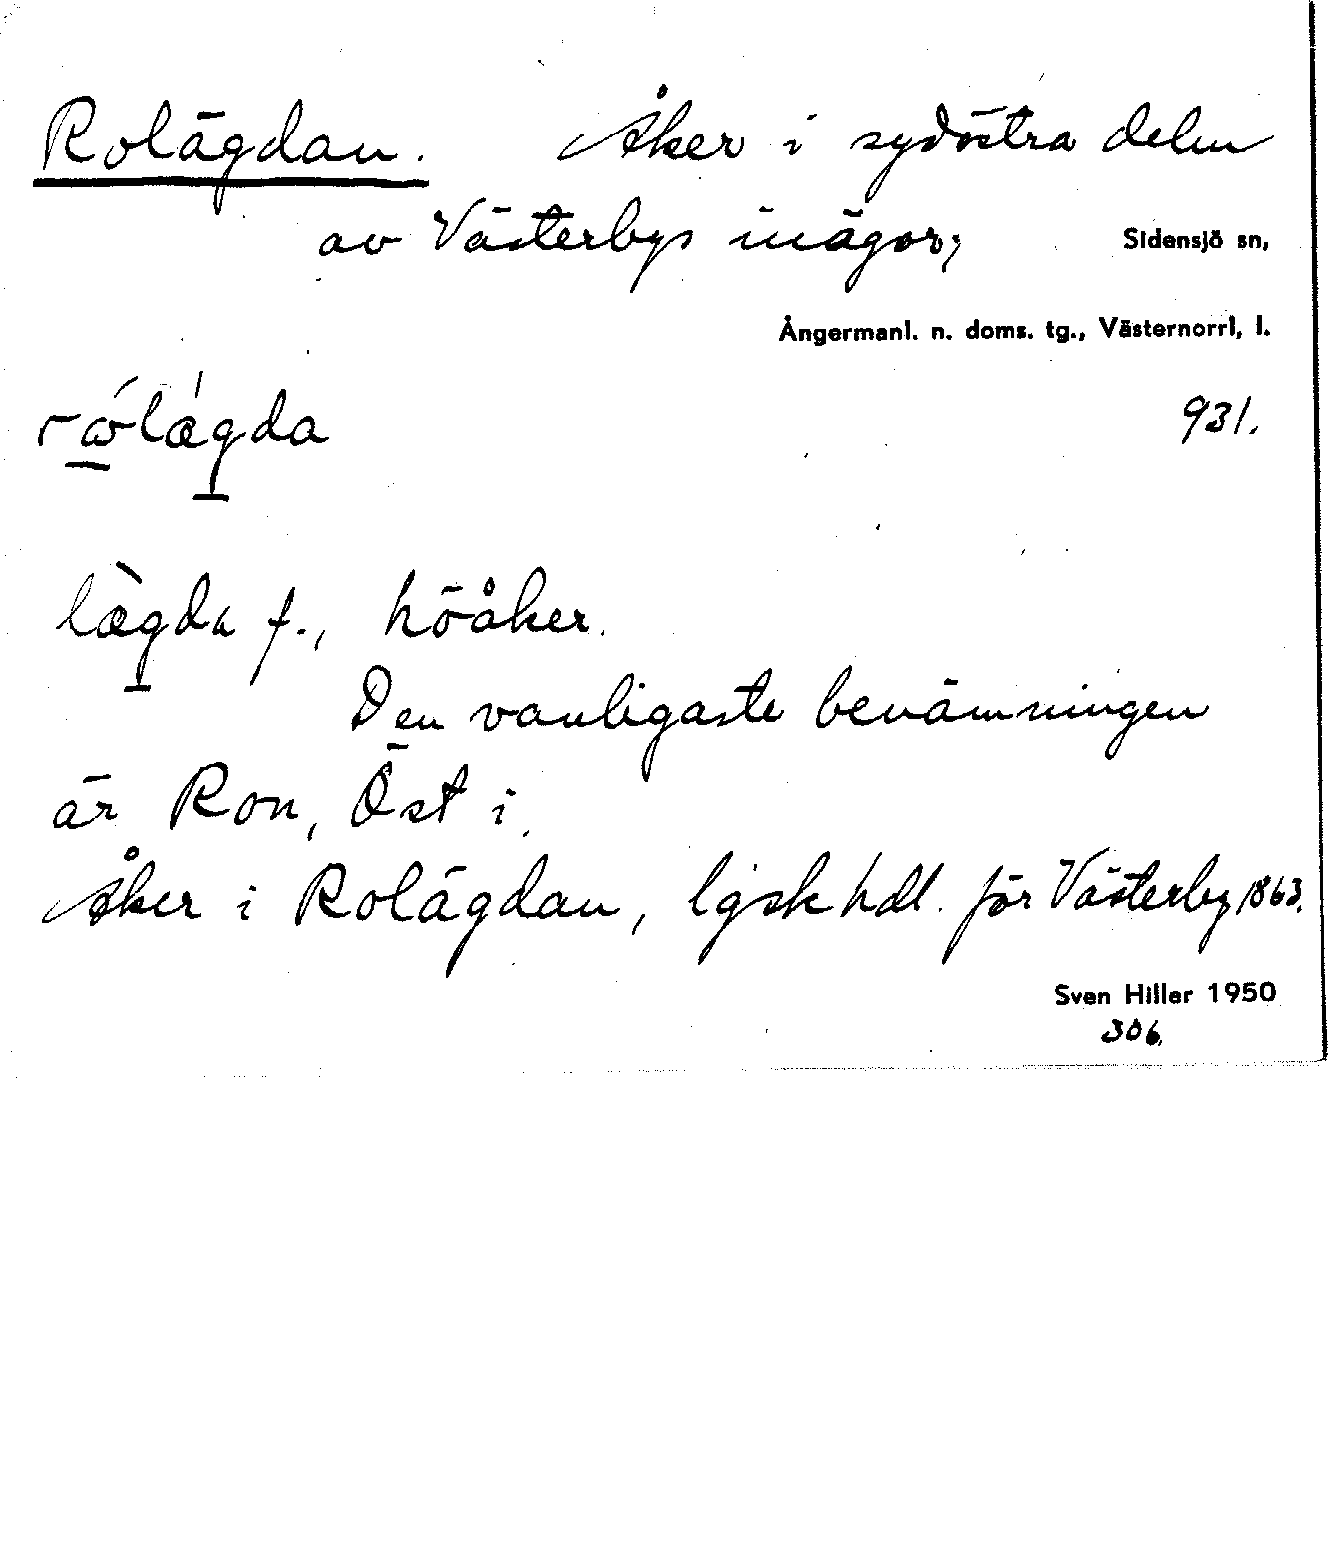 Rolägdan. Åker i sydöstra delen
av Västerbys inägor, Sidensjö sn,
Ångermanl. n. doms. tg., Västernorrl, l.
rω̄́lǽgda 931.
læ̀gda f., höåker.
Den vanligaste benämningen
är Ron, Öst i.
Åker i Rolägdan, lgsk hdl. för Västerby 1863.
Sven Hiller 1950
306.